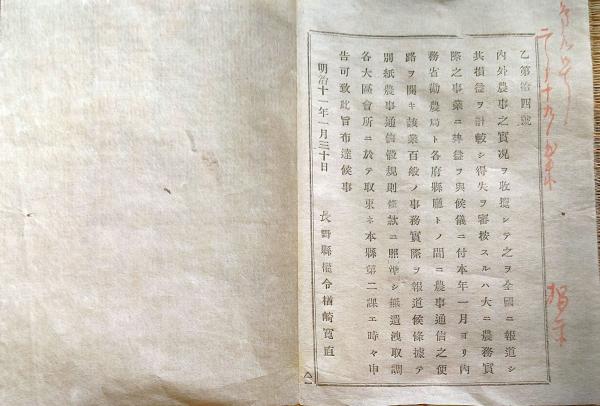 乙第拾四號
内外農事之實况ヲ收攬シテ之ヲ全國ニ報道シ
其損益ヲ計較シ得失ヲ審按スルハ大ニ農務實
際之事業ニ裨益ヲ與候儀ニ付本年一月ヨリ内
務省勸農局ト各府縣廳トノ間ニ農事通信之便
路ヲ開キ該業百般ノ事務實際ヲ報道候條據テ
別紙農事通信假規則條款ニ照準シ無遺洩取調
各大區會所ニ於テ取束ネ本縣第二課エ時々申
告可致此旨布達候事
明治十一年一月三十日
長野縣權令楢崎寛直